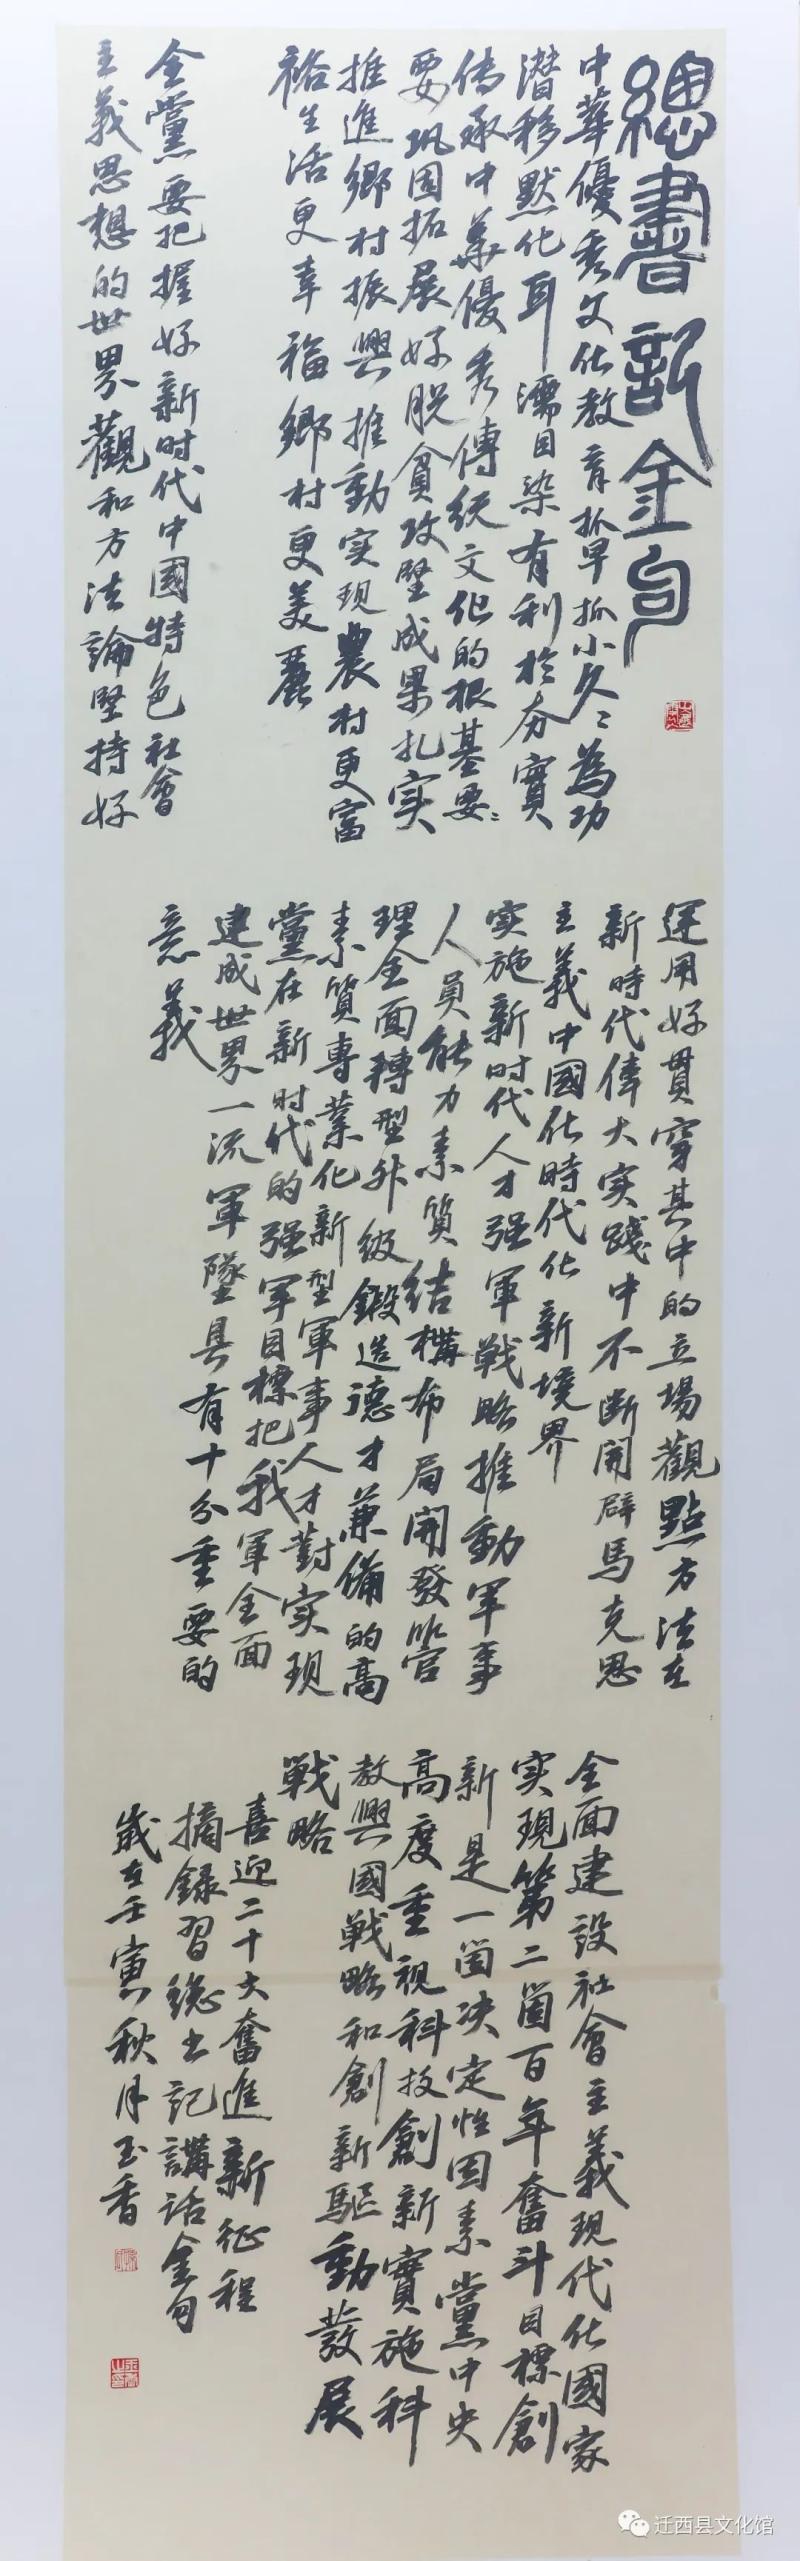 總書記金句
中華優秀文化教育抓早抓小久久為功
潛移默化耳濡目染有利於夯實
傳承中華優秀傳統文化的根基要
要巩固拓展好脱貧攻堅成果扎实
推進鄉村振興推動实現農村更富
裕生活更幸福鄉村更美麗
全黨要把握好新时代中國特色社會
主義思想的世界觀和方法論堅持好
運用好貫穿其中的立場觀點方法在
新時代偉大实踐中不断開辟馬克思
主義中國化時代化新境界
实施新时代人才强軍戰略推動軍事
人員能力素質結構布局開發管
理全面轉型升級鍛造德才兼備的高
素質專業化新型軍事人才對实現
黨在新时代的强军目標把我軍全面
建成世界一流軍隊具有十分重要的
意義
全面建設社會主義現代化國家
实現第二箇百年奮斗目標創
新是一箇决定性因素黨中央
高度重視科技創新實施科
教興國戰略和創新驅動發展
戰略
喜迎二十大奮進新征程
摘録習總书記講話金句
歲在壬寅秋月玉香
迁西县文化馆